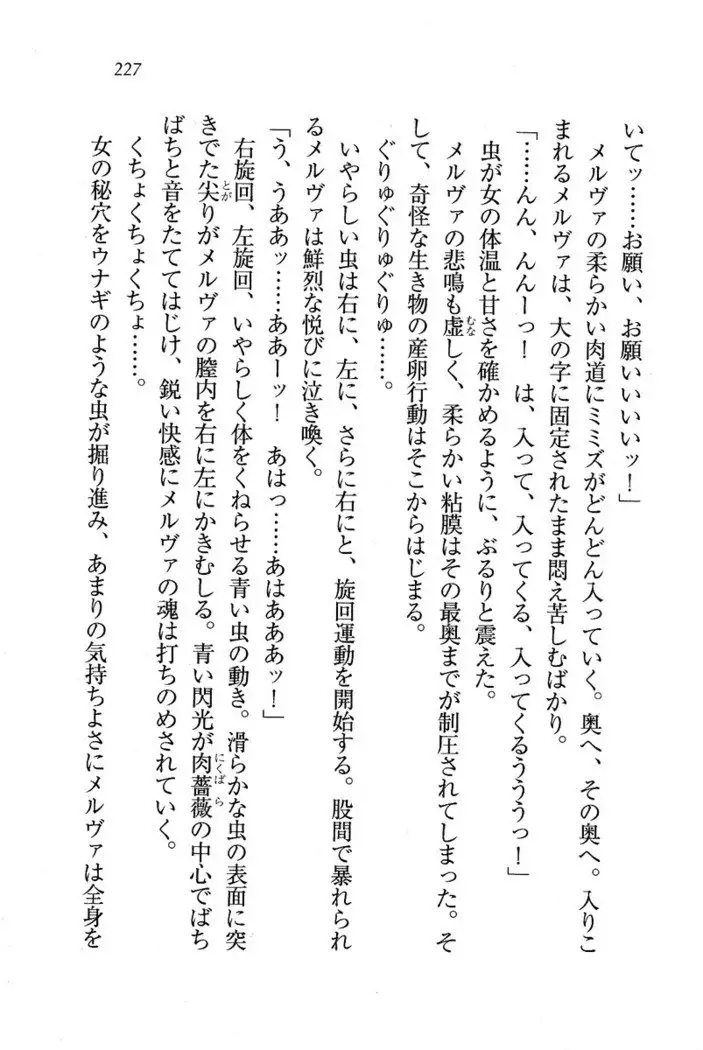 227
いてッ……お願い、お願いいいいッ！」
メルヴァの柔らかい肉道にミミズがどんどん入っていく。奥へ、その奥へ。入りこ
まれるメルヴァは、大の字に固定されたまま悶え苦しむばかり。
「……んん、んんーっ！　は、入って、入ってくる、入ってくるううっ！」
虫が女の体温と甘さを確かめるように、ぶるりと震えた。
メルヴァの悲鳴も虚しく、柔らかい粘膜はその最奥までが制圧されてしまった。そ
して、奇怪な生き物の産卵行動はそこからはじまる。
ぐりゅぐりゅぐりゅ……。
いやらしい虫は右に、左に、さらに右にと、旋回運動を開始する。股間で暴れられ
るメルヴァは鮮烈な悦びに泣き喚く。
「う、うああッ……ああーッ！　あはっ……あはあああッ！」
右旋回、左旋回、いやらしく体をくねらせる青い虫の動き。滑らかな虫の表面に突
きでた尖りがメルヴァの膣内を右に左にかきむしる。青い閃光が肉薔薇の中心でばち
ばちと音をたててはじけ、鋭い快感にメルヴァの魂は打ちのめされていく。
くちょくちょくちょ……。
女の秘穴をウナギのような虫が掘り進み、あまりの気持ちよさにメルヴァは全身を